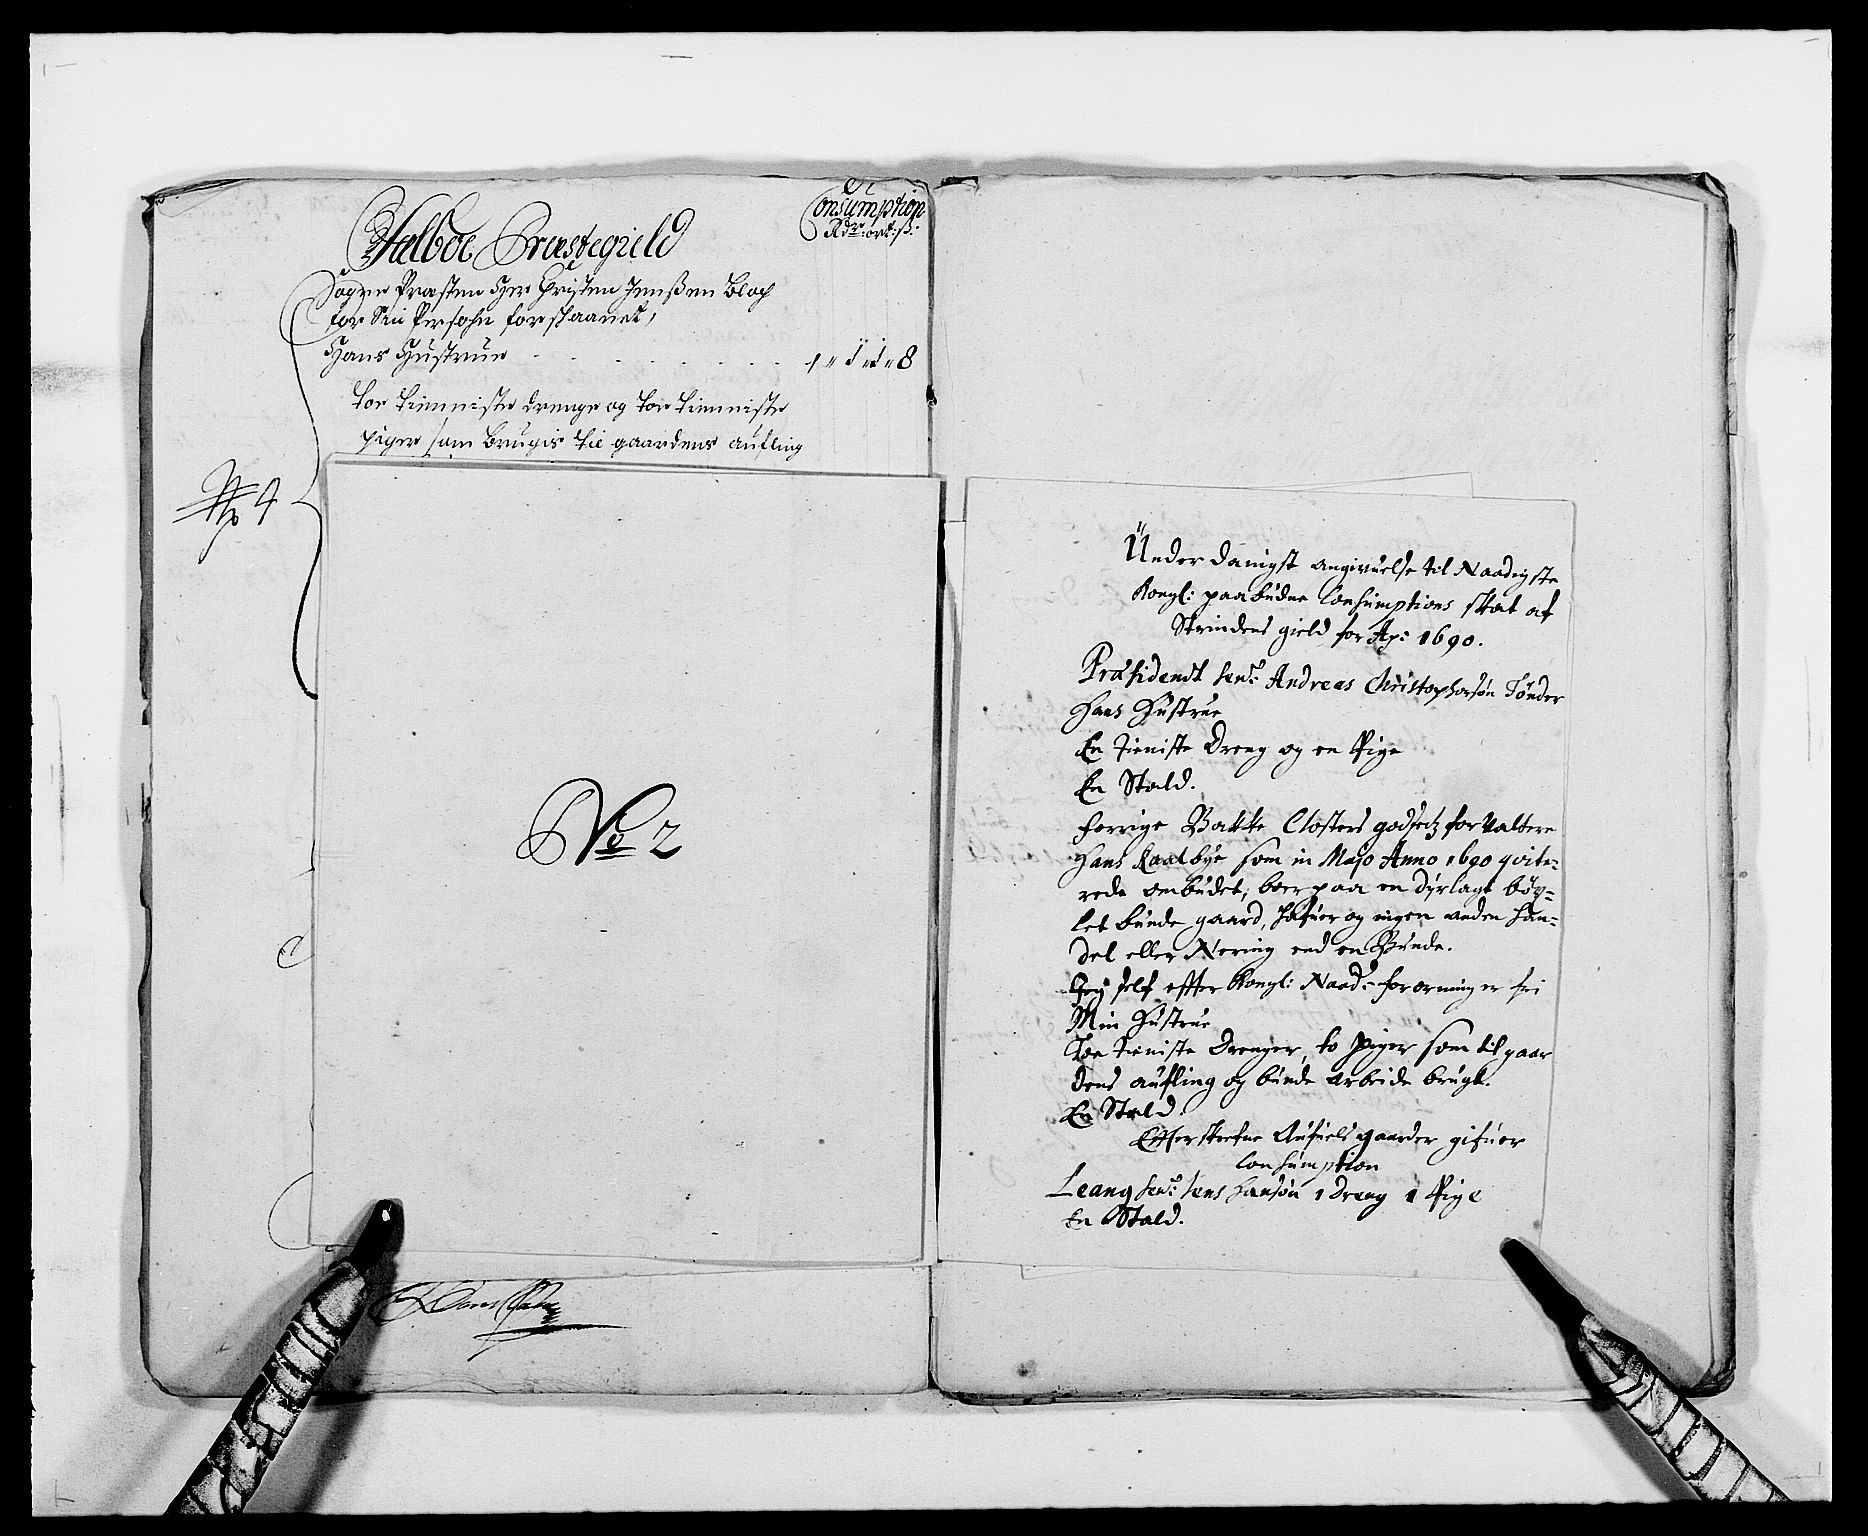 Consumption
Rdr: ort: ß:
Sælboe Præstegield
Sogne Præsten Her Christen Jenßen Bloch
for Sin Persohn forskaanet,
Hans Hustrue - - - - - - 1 " " 8
toe tienniste drenge og toe tienniste
piger som brugis til gaardens aufling
No 4
No 2
Under danigst angivuelse til Naadigste
Kongl: paabudne Consumptions skat af
Strindens gield for Ao: 1690.
Præsidendt Sen: Andreas Christophersøn Tønder
Hans Hustrue
En tieniste Dreng og en Pige
En Stald.
forrige Bakke Closters godsetz forvaltere
Hans Raalbye som in Majo Anno 1690 qvite-
rede ombudet, boer paa en dyrlagt böx-
let bunde gaard, hafuer og ingen anden han-
del eller Nering end en Bunde.
Jeg self efter Kongl: Naad: forordning er fri
Min Hustrue
Toe tieniste Drenger, to Piger som til gaar
dens aufling og bunde arbeide brugt.
En Stald.
Efterskrefne Aufuels gaarder gifuer
Consumption
Leangsen: Jens Hansøn 1 Dreng 1 Pige
En Stald.